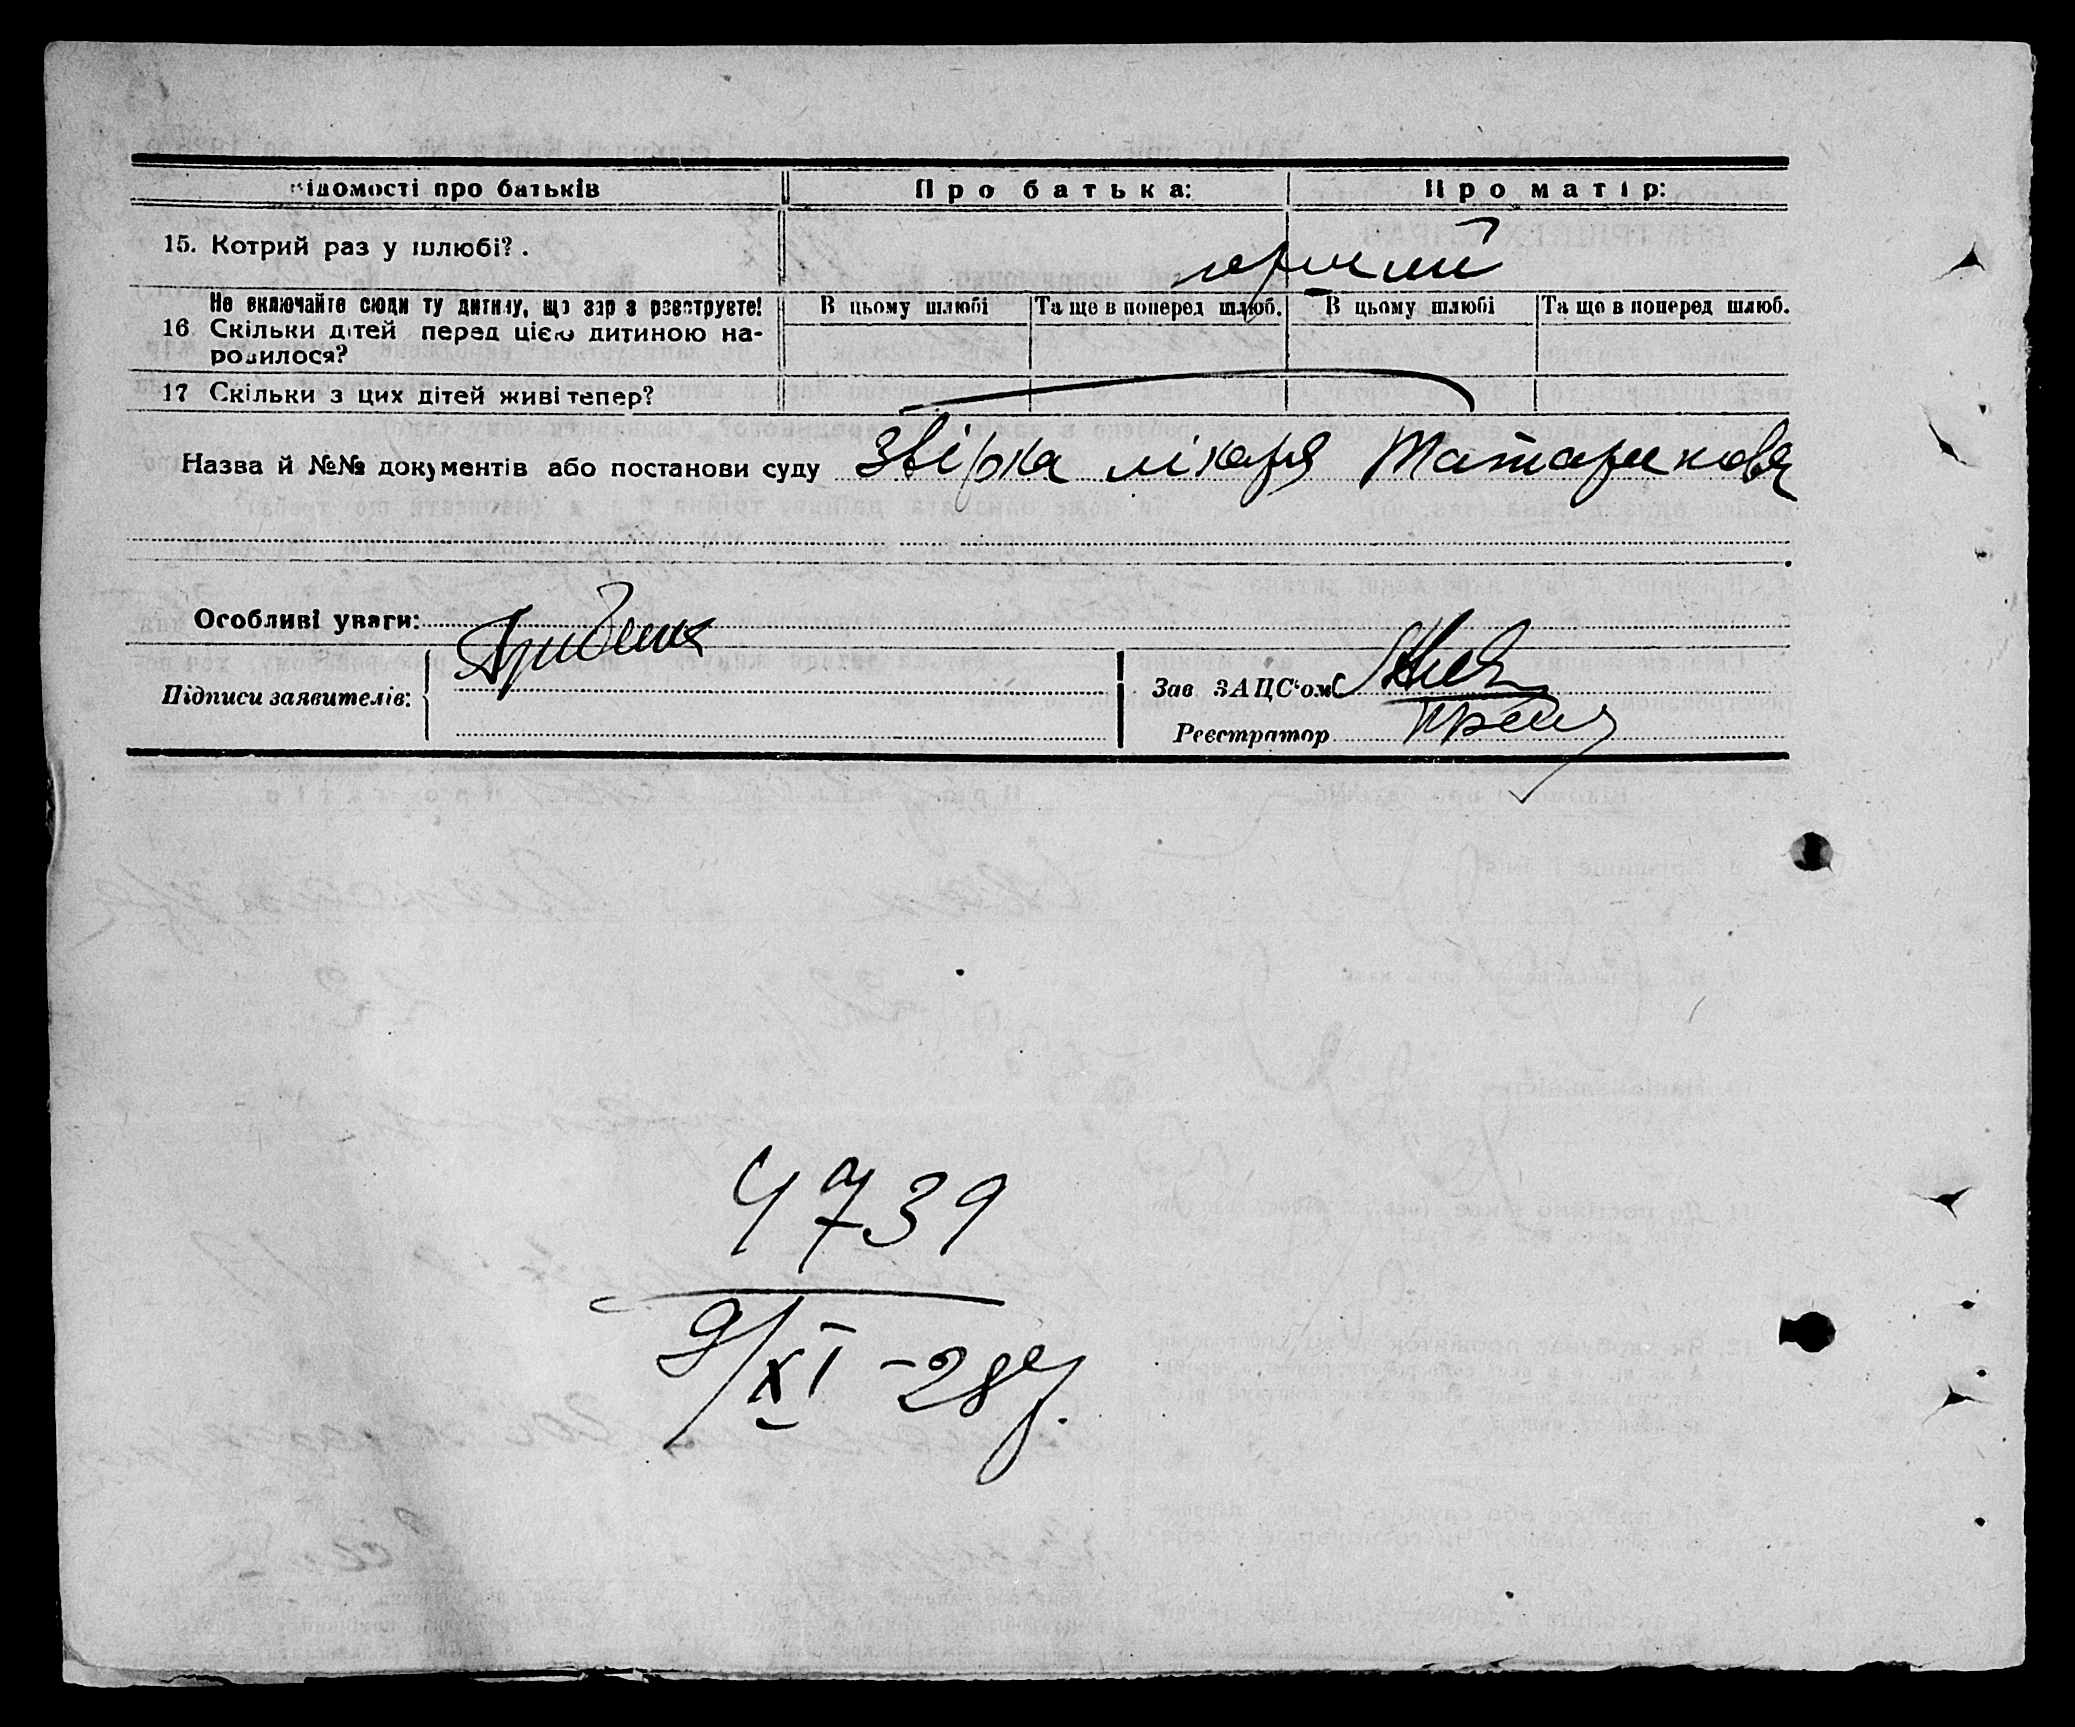 Відомості про батьків Про батька: Про матір:
15. Котрий раз у шлюбі? . перший
Не включайте сюди ту дитину, що зараз реєструєте! В цьому шлюбі Та ще в поперед шлюб. В цьому шлюбі Та ще в поперед шлюб.
16 Скільки дітей перед цією дитиною на-
родилося?
17 Скільки з цих дітей живі тепер?
Назва й №№ документів або постанови суду Звірка лікаря Татаринова
Особливі уваги:
Підписи заявителів: Зав ЗАЦС'ом
Реєстратор
4739
9/XI-28р.